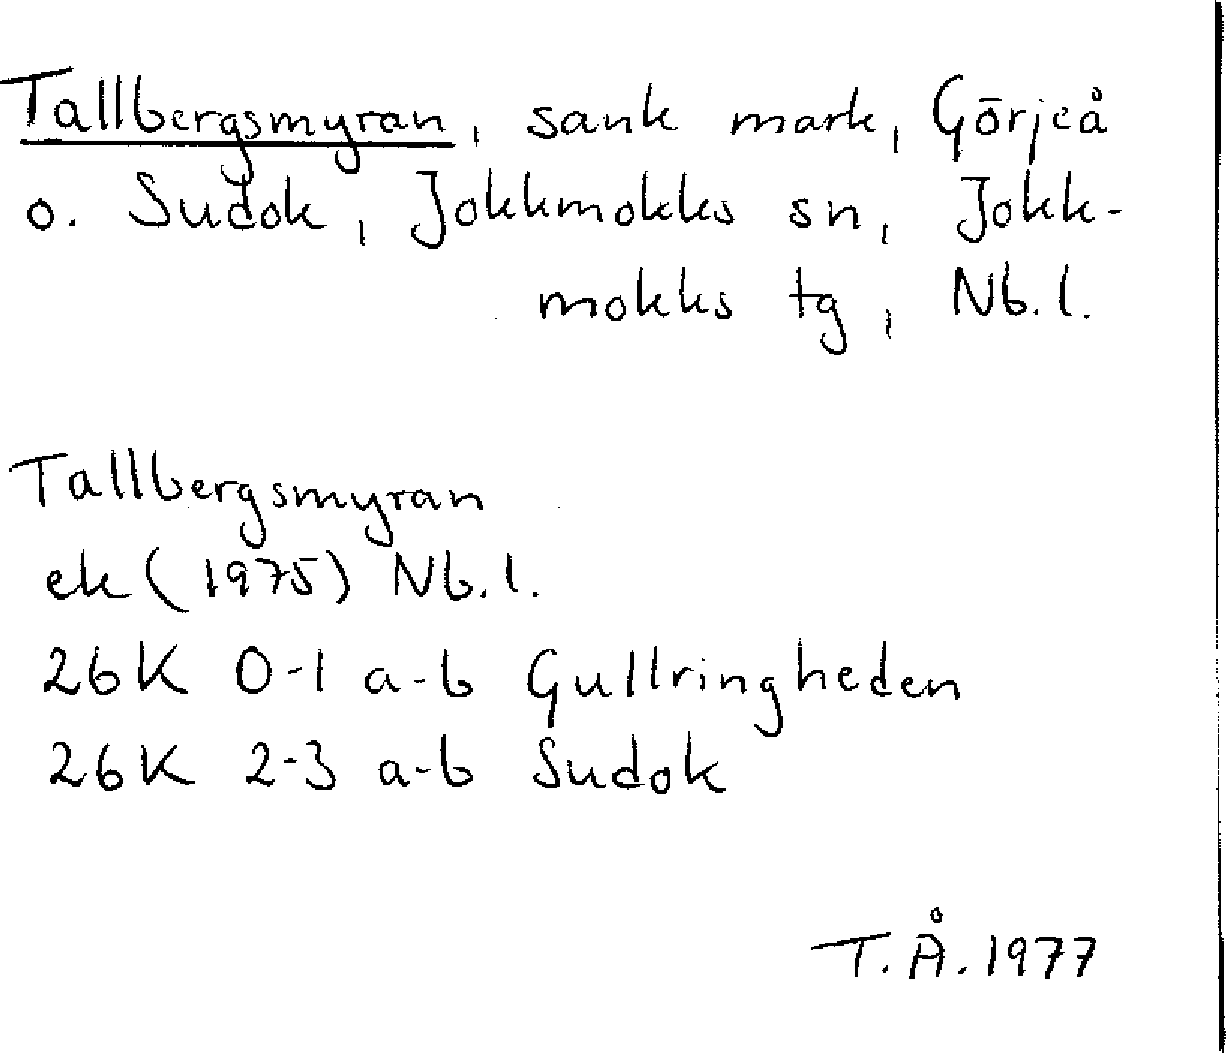 Tallbergsmyran, sank mark, Görjeå
o. Sudok, Jokkmokks sn, Jokk-
mokks tg, Nb.l.
Tallbergsmyran
ek (1975) Nb.l.
26K 0-1 a-b Gullringheden
26K 2-3 a-b Sudok
T.Å. 1977